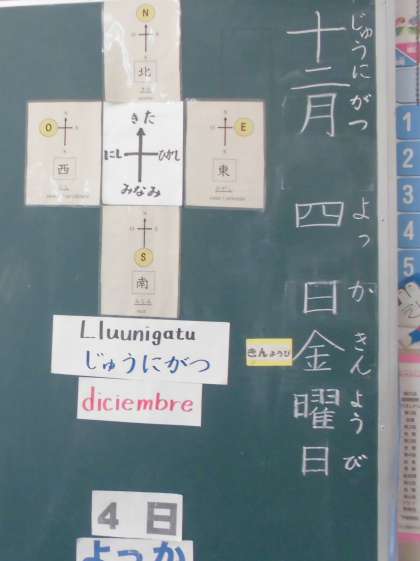 十二月四日金曜日
じゅうにがつ
よっか
きんようび
きんようび
N
北
O
西
E
東
S
南
きた
にし
ひがし
みなみ
Lluunigatu
じゅうにがつ
diciembre
4日
よっか
1
2
3
4
5